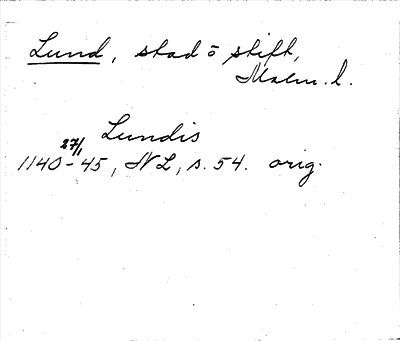 Lund, stad o stift,
Malm. l.
Lundis
27/1
1140-45, NL, s. 54. orig.